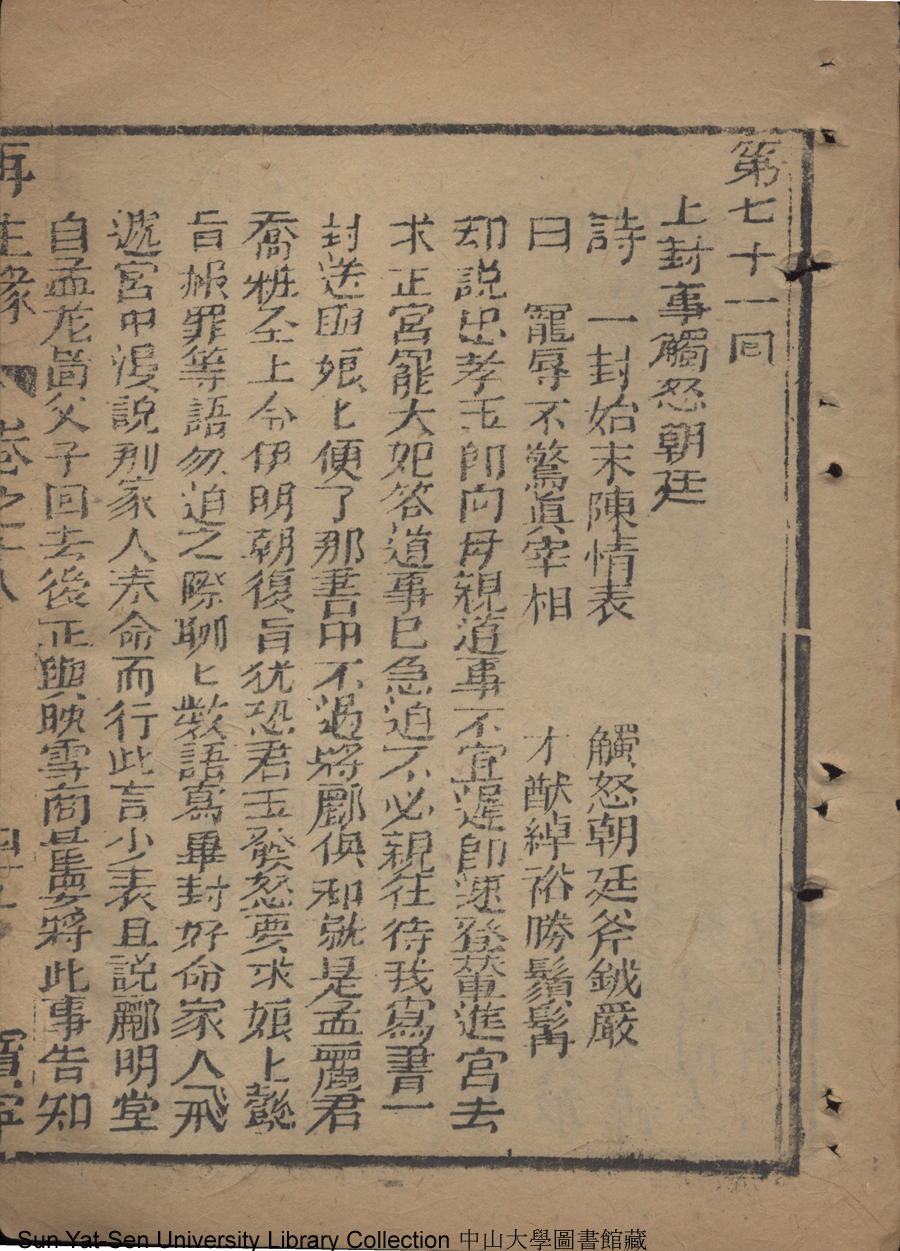 第七十一回
上封事觸怒朝廷
詩　一封始末陳情表　觸怒朝廷斧鉞嚴
曰　寵辱不驚眞宰相　才猷綽裕勝鬚髯
却説忠孝王卽向母親道事不宜遲卽速登輦進宮去
求正宮寵太妃答道事已急迫不必親往待我寫書一
封送與娘匕便了那書中不過將酈俱和就是孟麗君
喬粧至上令伊明朝復旨犹恐君王發怒要求娘上懿
旨赧罪等語勿迫之際聊匕数語寫畢封好命家人飛
遞宮中漫説那家人奉命而行此言少表且説酈明堂
自孟龙啚父子回去後正與映雪商量要將此事告知
再生緣　卷之十八
Sun Yat-Sen University Library Collection 中山大學圖書館藏